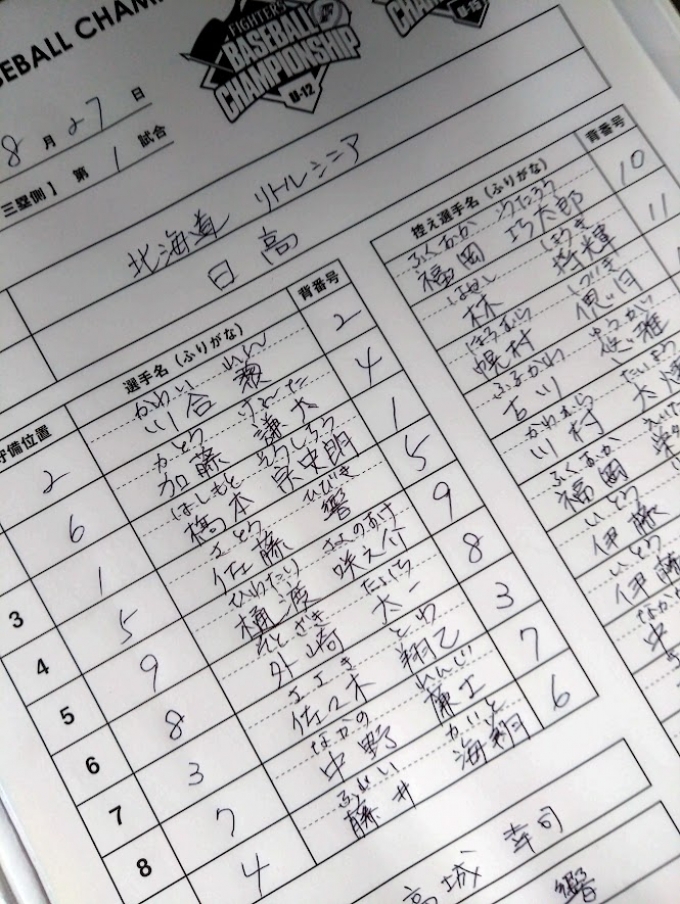 BASEBALL CHAM
FIGHTERS
BASEBALL
CHAMPIONSHIP
U-12
CHAMPIONSHIP
U-15
8 月 27 日
三塁側】 第 1 試合
北海道 リトルシニア
日高
守備位置 選手名(ふりがな) 背番号
かわい れん
2 川合 2
かとう けんた
6 加藤 謙太 4
はしもと そうしろう
1 橋本 宗史朗 1
さとう ひびき
3 5 佐藤 響 5
ひわたり さくのすけ
4 9 樋渡 咲之介 9
そとざき たいち
5 8 外崎 太一 8
ささき とわ
6 3 佐々木 翔乙 3
なかの れんじ
7 7 中野 廉士 7
ふじい かいと
8 4 藤井 海翔 6
高城 幸司
響
控え選手名(ふりがな) 背番号
ふくおか こたろう
福岡 巧太郎 10
はやし
林 将輝 11
ほろむら
幌村
ふるかわ
古川 悠雅
かわむら
川村
ふくおか
福岡
いとう
伊藤
いとう
伊藤
なかが
中